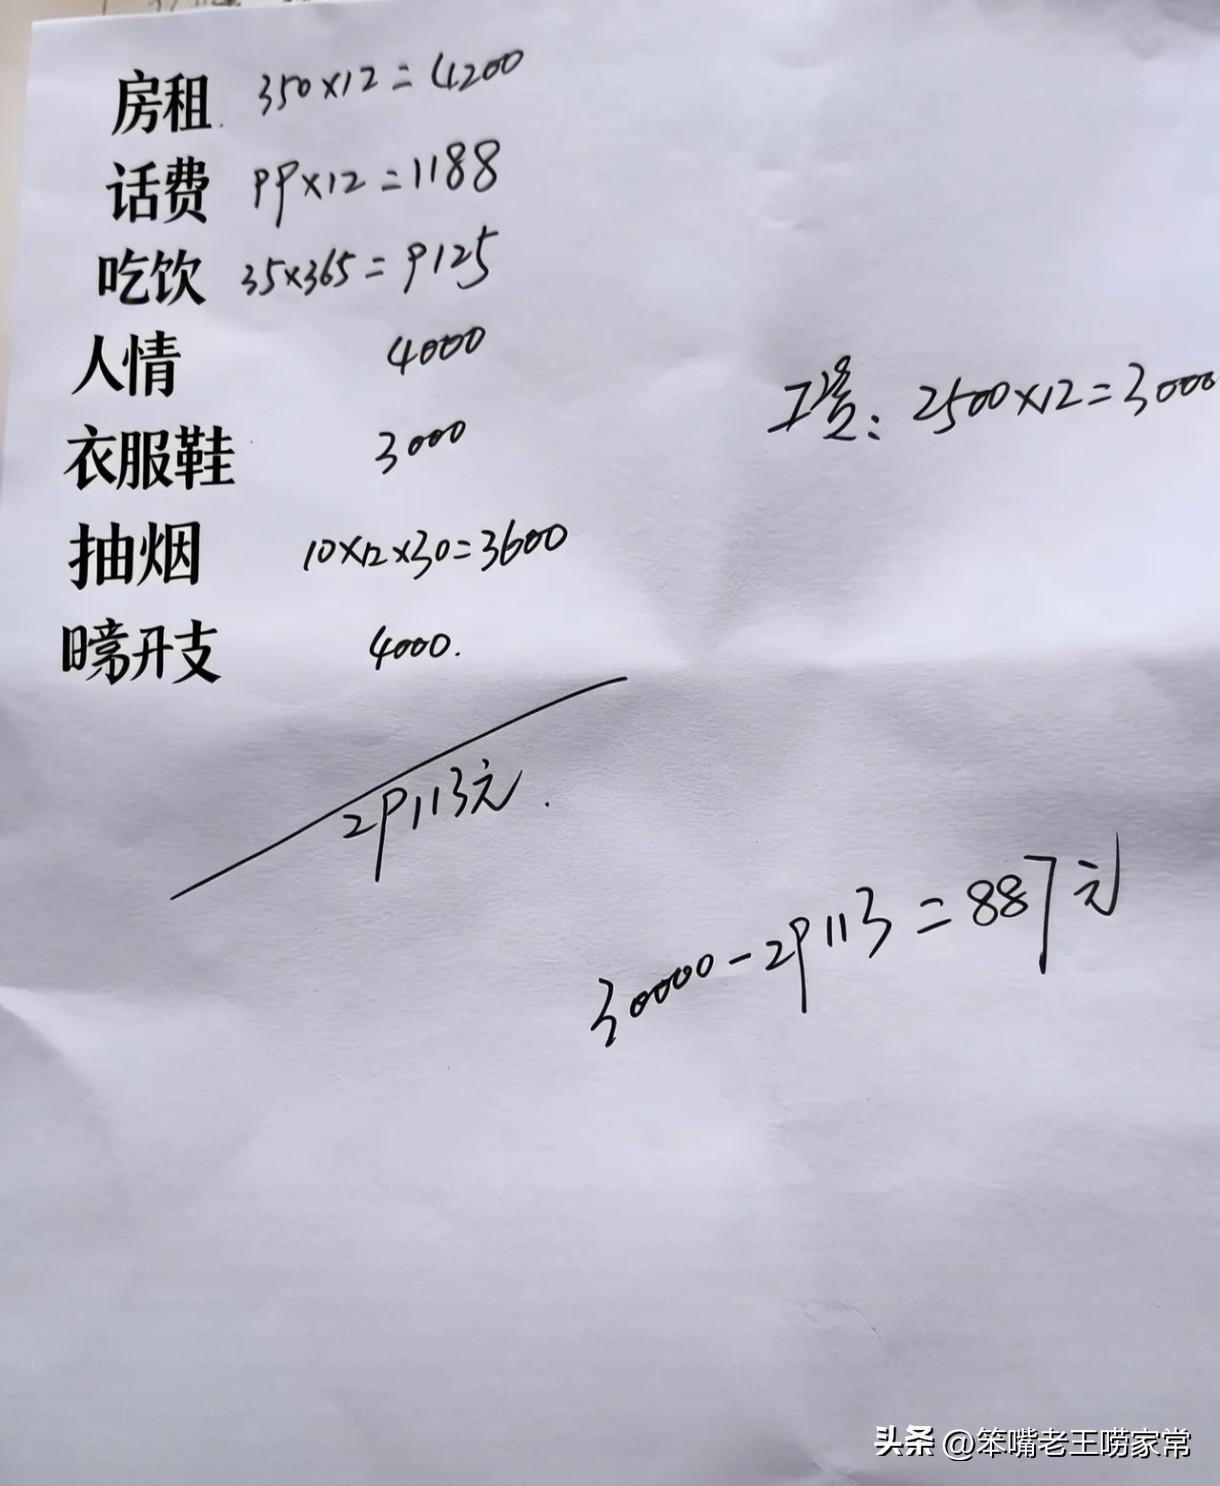 房租 350×12=4200
话费 99×12=1188
吃饮 35×365=9125
人情 4000
工资: 2500×12=3000
衣服鞋 3000
抽烟 10×12×30=3600
开支 4000.
29113元.
30000-29113=887元
头条 @笨嘴老王唠家常